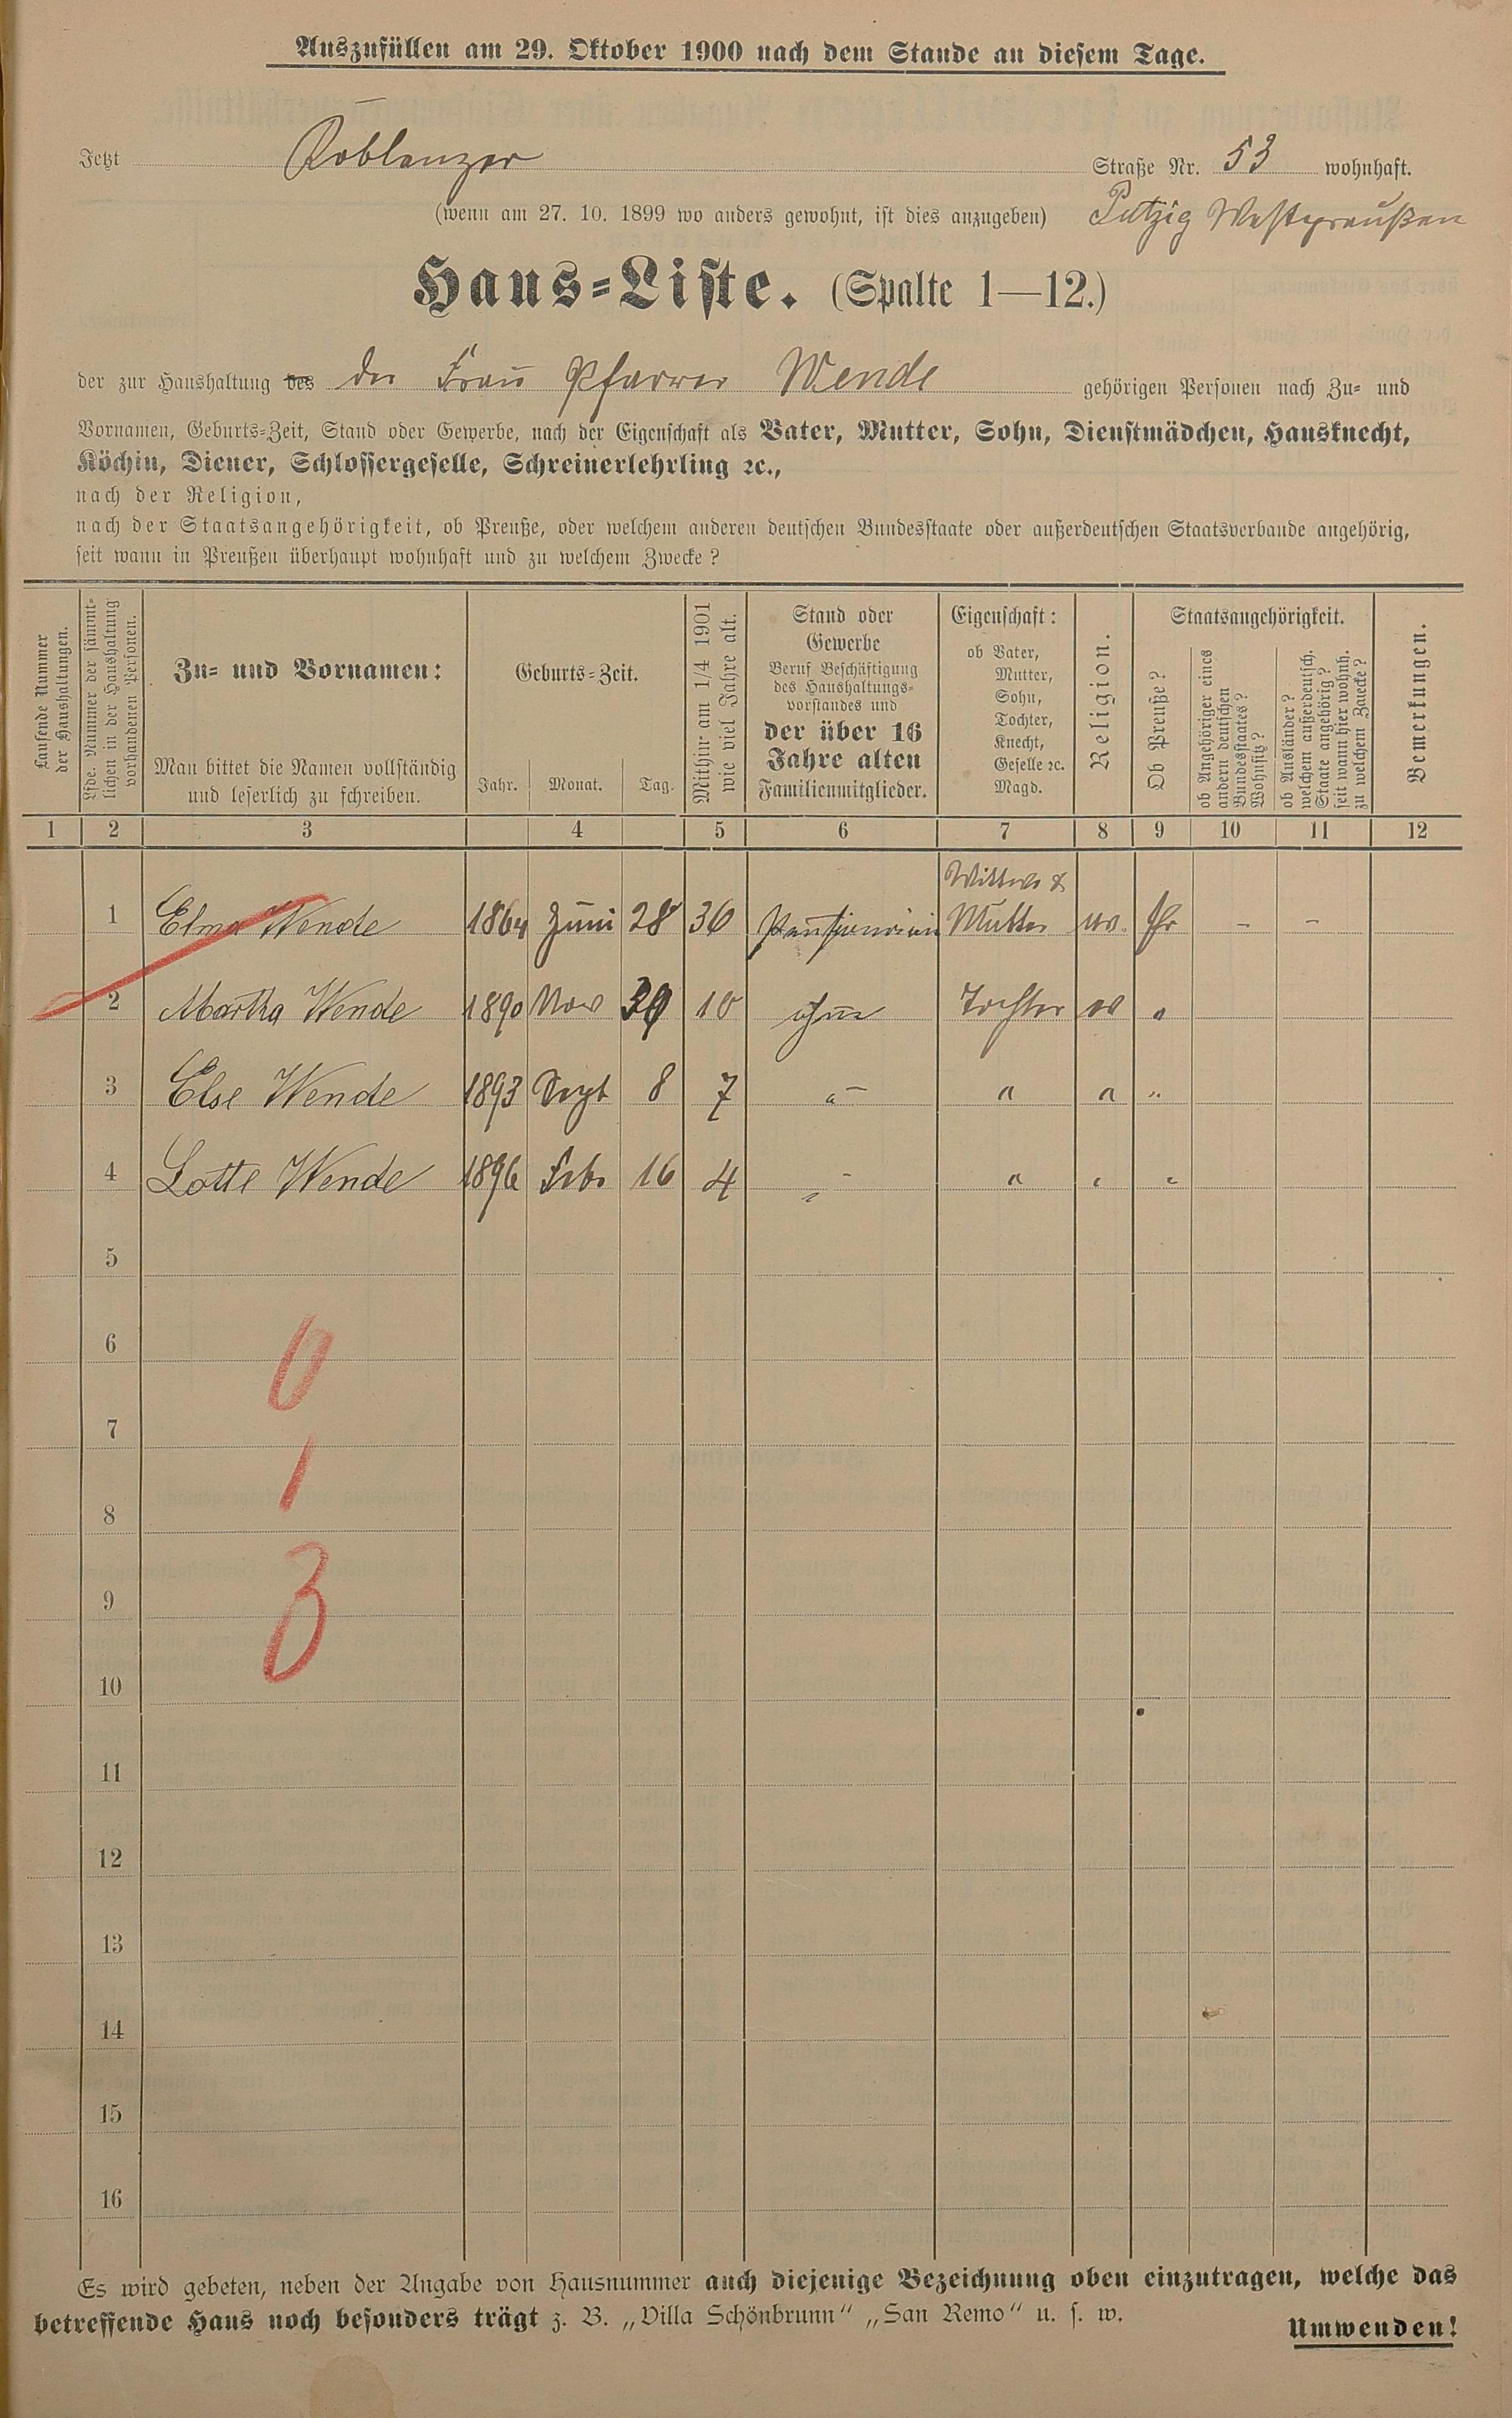 Auszufüllen am 29. Oktober 1900 nach dem Stande an diesem Tage.
Jetzt Koblenzer Straße Nr. 53 wohnhaft.
(wenn am 27. 10. 1899 wo anders gewohnt, ist dies anzugeben) Putzig Westpreußen
Haus-Liste. (Spalte 1—12.)
der zur Haushaltung des der Frau Pfarrer Wende gehörigen Personen nach Zu- und
Vornamen, Geburts-Zeit, Stand oder Gewerbe, nach der Eigenschaft als Vater, Mutter, Sohn, Dienstmädchen, Hausknecht,
Köchin, Diener, Schlossergeselle, Schreinerlehrling ꝛc.,
nach der Religion,
nach der Staatsangehörigkeit, ob Preuße, oder welchem anderen deutschen Bundesstaate oder außerdeutschen Staatsverbande angehörig,
seit wann in Preußen überhaupt wohnhaft und zu welchem Zwecke?
Laufende Nummer
der Haushaltungen.
Lfde. Nummer der sämmt-
lichen in der Haushaltung
vorhandenen Personen.
Zu- und Vornamen:
Man bittet die Namen vollständig
und leserlich zu schreiben.
Geburts-Zeit.
Jahr. Monat. Tag.
Mithin am 1/4 1901
wie viel Jahre alt.
Stand oder
Gewerbe
Beruf Beschäftigung
des Haushaltungs-
vorstandes und
der über 16
Jahre alten
Familienmitglieder.
Eigenschaft:
ob Vater,
Mutter,
Sohn,
Tochter,
Knecht,
Geselle ꝛc.
Magd.
Religion.
Staatsangehörigkeit.
Ob Preuße?
ob Angehöriger eines
andern deutschen
Bundesstaates?
Wohnsitz?
ob Ausländer?
welchem außerdeutsch.
Staate angehörig?
seit wann hier wohnh.
zu welchem Zwecke?
Bemerkungen.
1 2 3 4 5 6 7 8 9 10 11 12
Wittwe &
1 Elma Wende 1864 Juni 28 36 Pensionärin Mutter ev. Pr - -
2 Martha Wende 1890 Nov 30 10 ohne Tochter ev "
3 Else Wende 1893 Sept 8 7 " - " " "
4 Lotte Wende 1896 Febr 16 4 " - " " "
5
6
0
7
1
8
9
3
10
11
12
13
14
15
16
Es wird gebeten, neben der Angabe von Hausnummer auch diejenige Bezeichnung oben einzutragen, welche das
betreffende Haus noch besonders trägt z. B. „Villa Schönbrunn“ „San Remo“ u. s. w.
Umwenden!